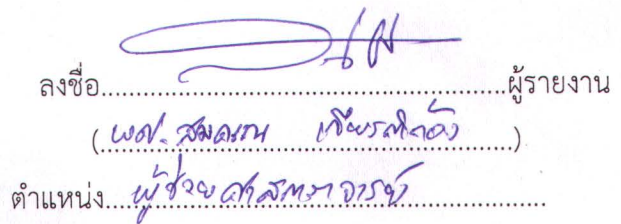 ลงชื่อ..........ผู้รายงาน
(ผศ. เกียรติก้อง)
ตำแหน่ง ผู้ช่วยศาสตราจารย์